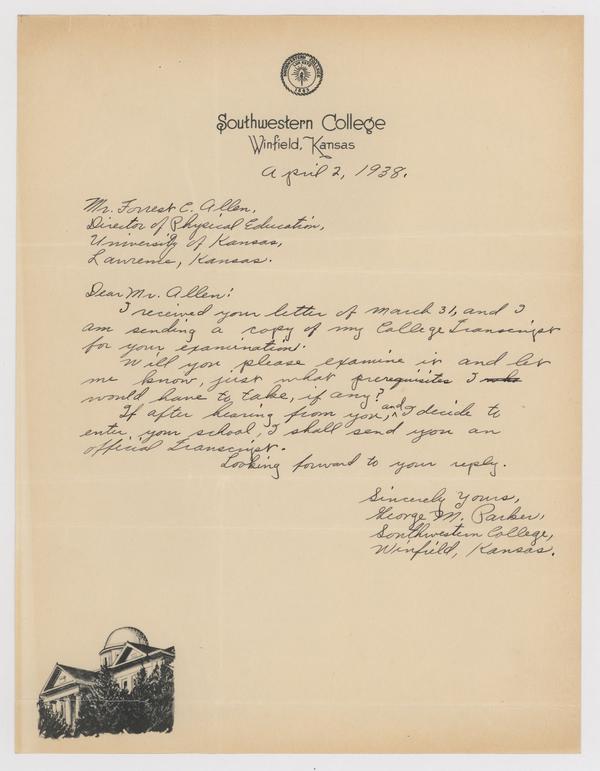 SOUTHWESTERN COLLEGE
1885
Southwestern College
Winfield, Kansas
April 2, 1938.
Mr. Forrest C. Allen,
Director of Physical Education,
University of Kansas,
Lawrence, Kansas.
Dear Mr. Allen:
I received your letter of March 31, and I
am sending a copy of my College Transcript
for your examination.
Will you please examine it and let
me know, just what prerequisites I
would have to take, if any?
If after hearing from you, and I decide to
enter your school, I shall send you an
official Transcript.
Looking forward to your reply.
Sincerely Yours,
George M. Parker,
Southwestern College,
Winfield, Kansas.